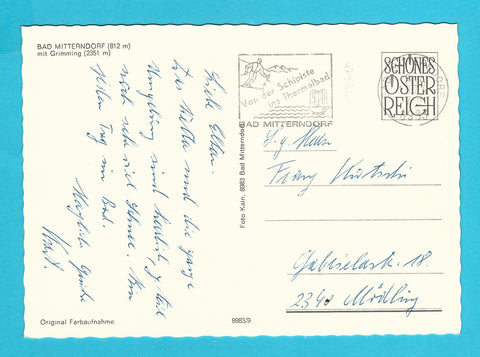 BAD MITTERNDORF (812 m)
mit Grimming (2351 m)
Liebe Eltern!
Das Hotel und die ganze
Umgebung sind herrlich, z. teil
noch sehr viel Schnee. Bin
jeden Tag im Bad.
Herzliche Grüße
Original Farbaufnahme
8983/9
Foto Kain, 8983 Bad Mitterndorf
Von der Schipiste
ins Thermalbad
BAD MITTERNDORF
SCHÖNES
ÖSTER
REICH
Franz
Gabrielerstr. 18.
2340 Mödling